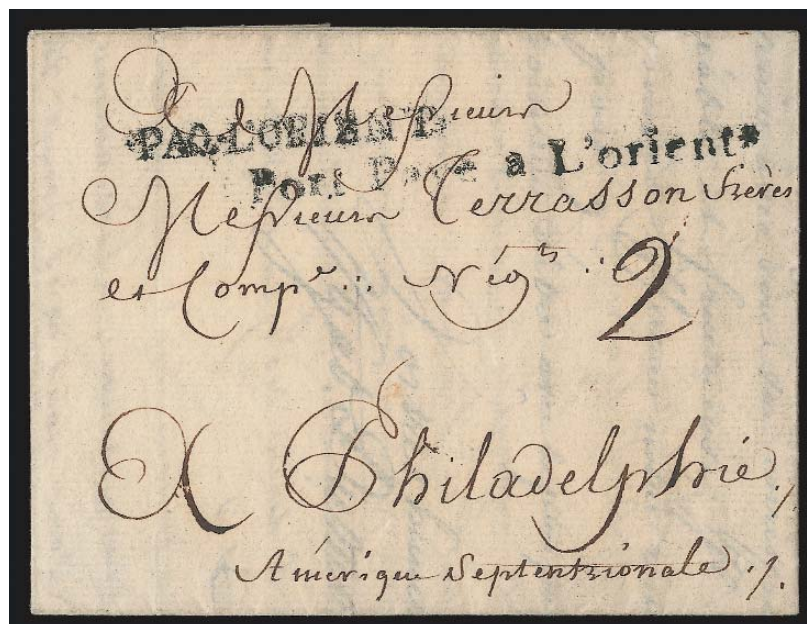 A Messieurs
PAQ.LORIENT.
Port Payé a L'orient
Messieurs Terrasson Freres
et Compe .: Négts .:
2
A Philadelphie ./
Amérique Septentrionale ./.